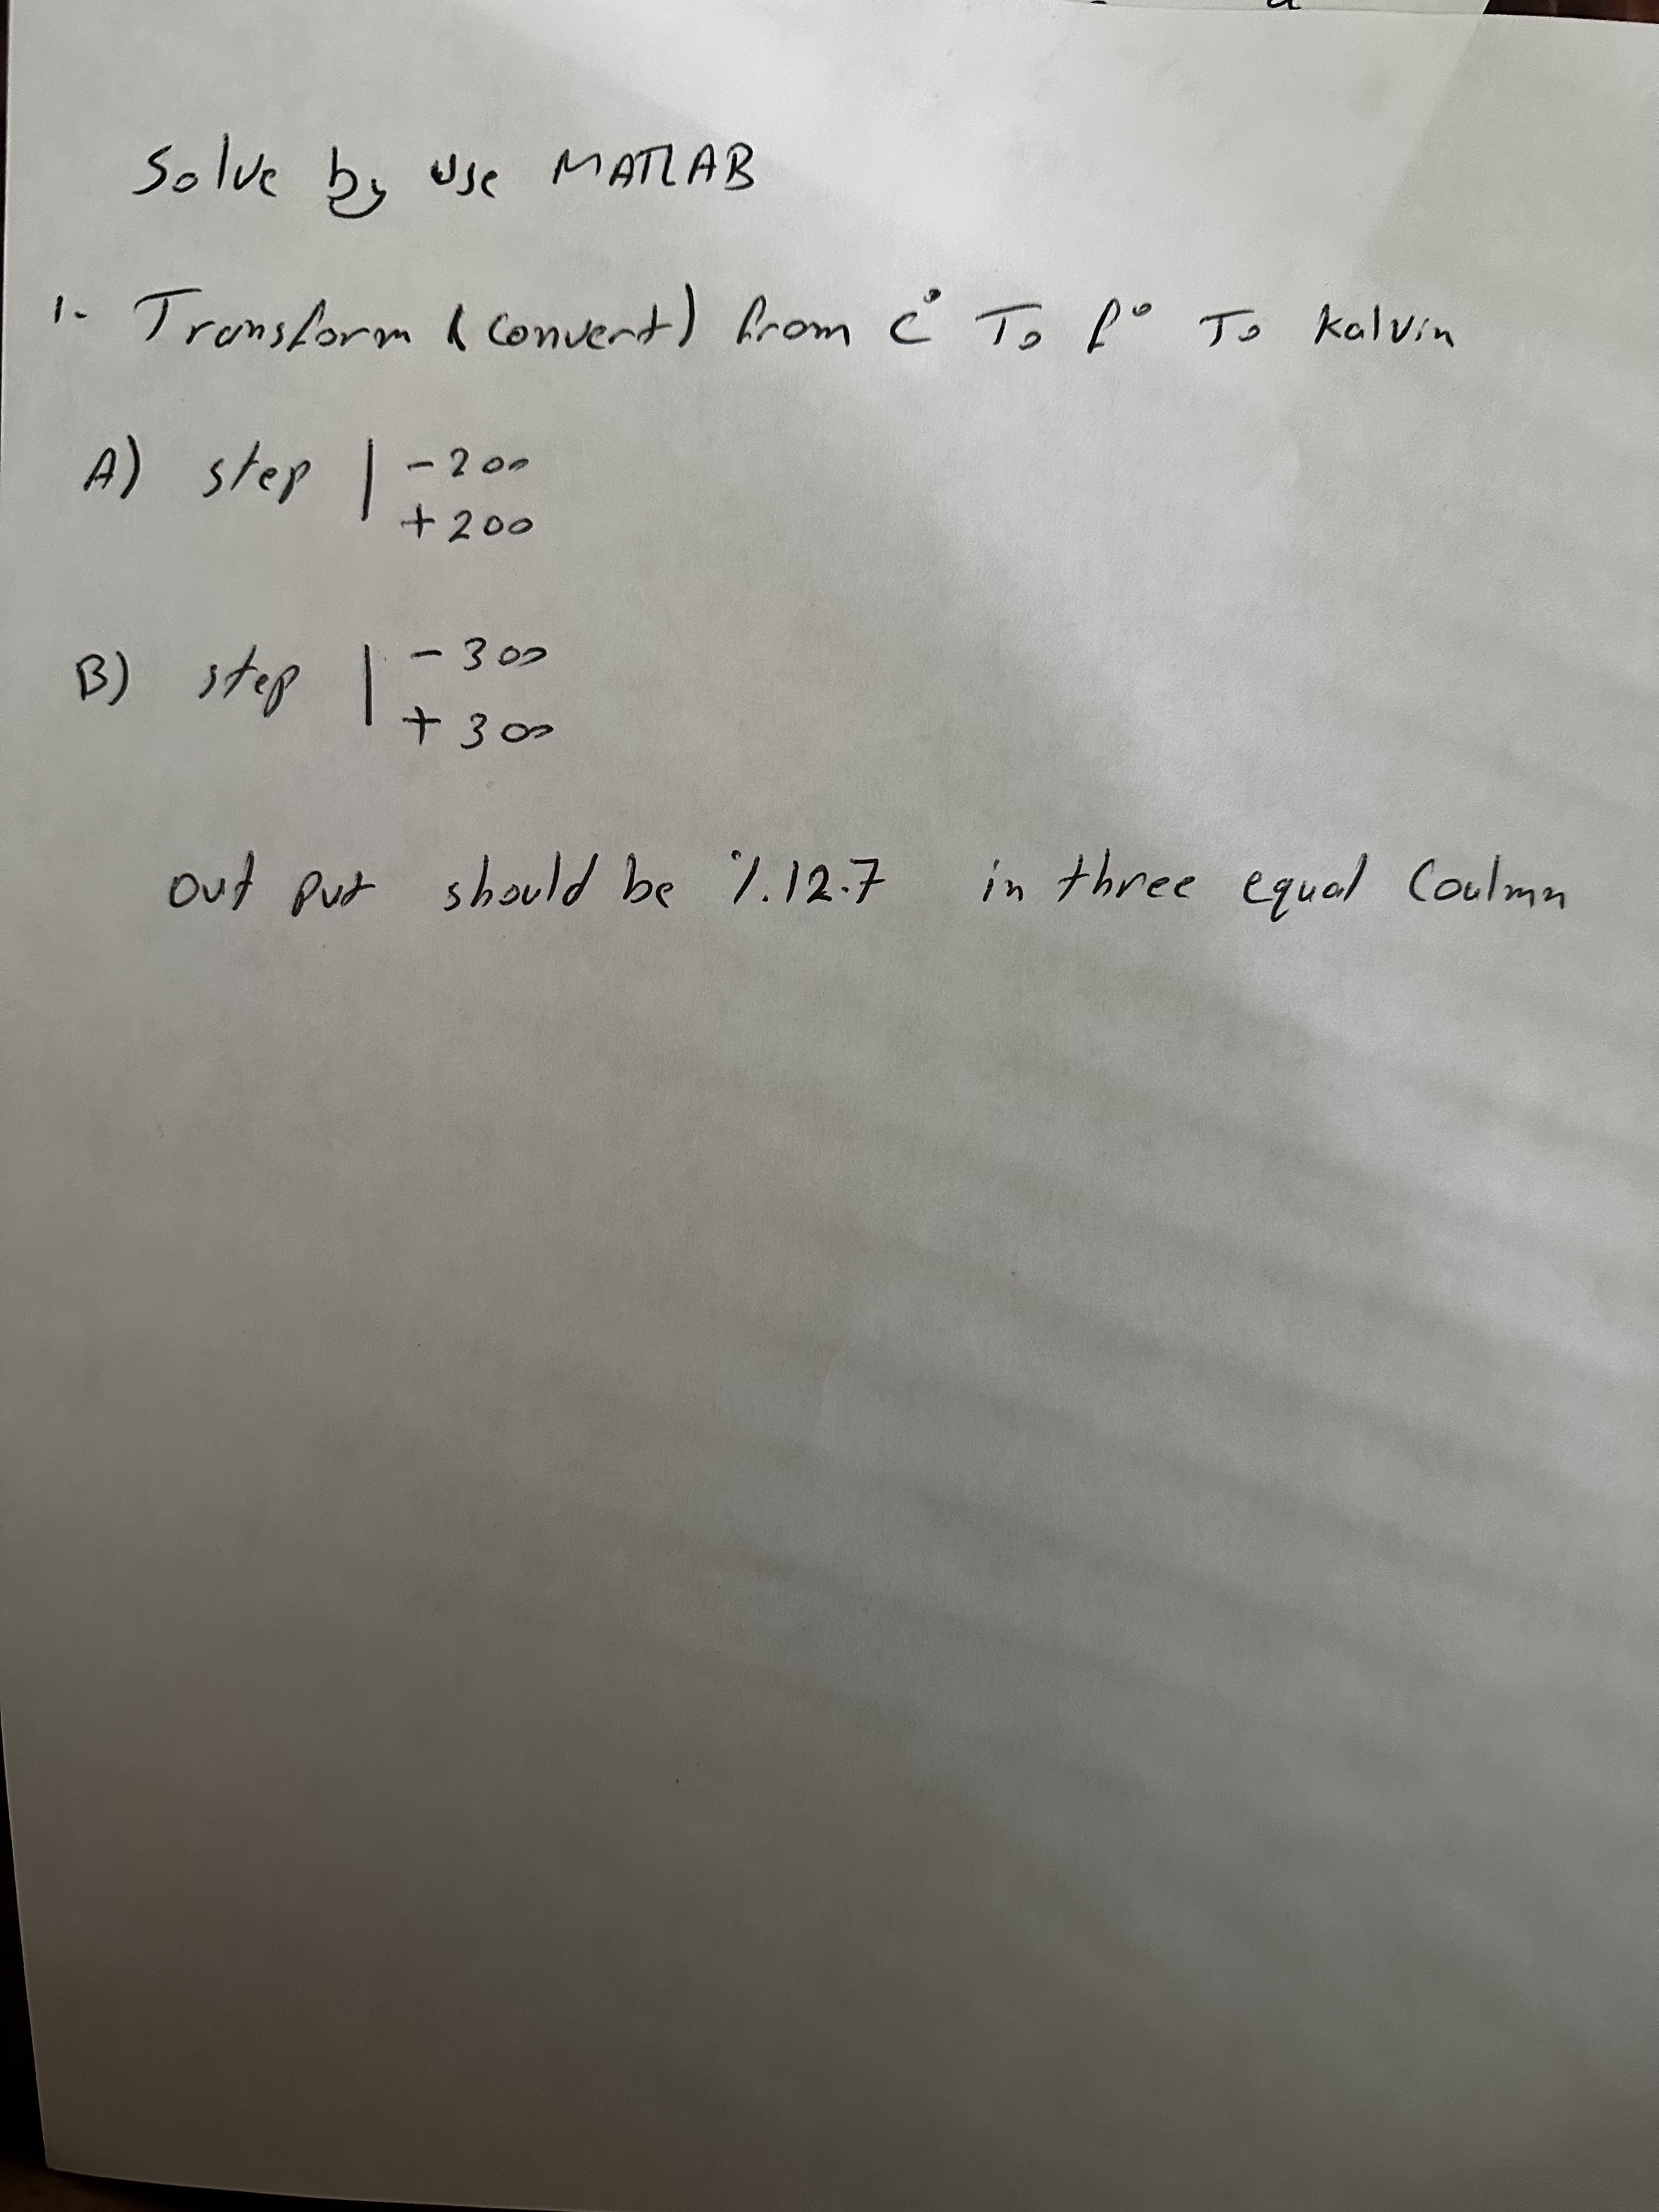 Solve by use MATLAB
1- Transform (convert) from C° To f° To kalvin
A) step | -200
+200
B) step | -300
+300
out put should be %.12.7 in three equal Coulmn